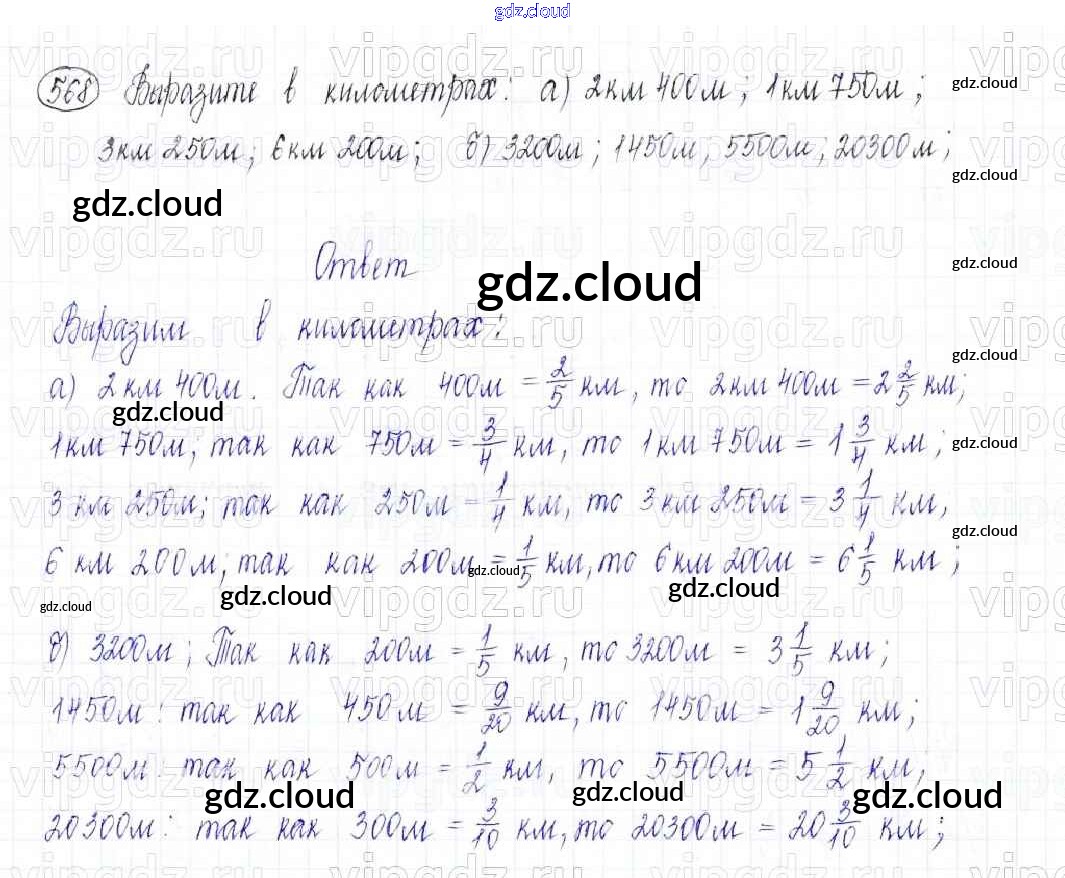 gdz.cloud
568 Выразите в километрах: а) 2км 400м; 1км 750м;
gdz.cloud
3км 250м; 6км 200м; б) 3200м; 1450м, 5500м, 20300м;
gdz.cloud
gdz.cloud
Ответ
gdz.cloud
gdz.cloud
Выразим в километрах:
gdz.cloud
а) 2км 400м. Так как 400м = 2/5 км, то 2км 400м = 2 2/5 км;
gdz.cloud
1км 750м; так как 750м = 3/4 км, то 1км 750м = 1 3/4 км;
gdz.cloud
3 км 250м; так как 250м = 1/4 км, то 3км 250м = 3 1/4 км,
gdz.cloud
6 км 200м; так как 200м = 1/5 км, то 6км 200м = 6 1/5 км;
gdz.cloud
gdz.cloud
gdz.cloud
gdz.cloud
б) 3200м; Так как 200м = 1/5 км, то 3200м = 3 1/5 км;
1450м: так как 450м = 9/20 км, то 1450м = 1 9/20 км;
5500м: так как 500м = 1/2 км, то 5500м = 5 1/2 км,
gdz.cloud
gdz.cloud
gdz.cloud
20300м: так как 300м = 3/10 км, то 20300м = 20 3/10 км;